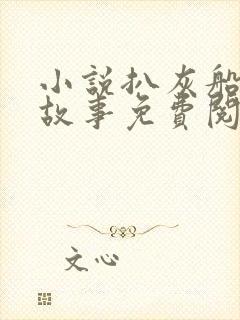 小說扒灰船
故事免費閱
文心